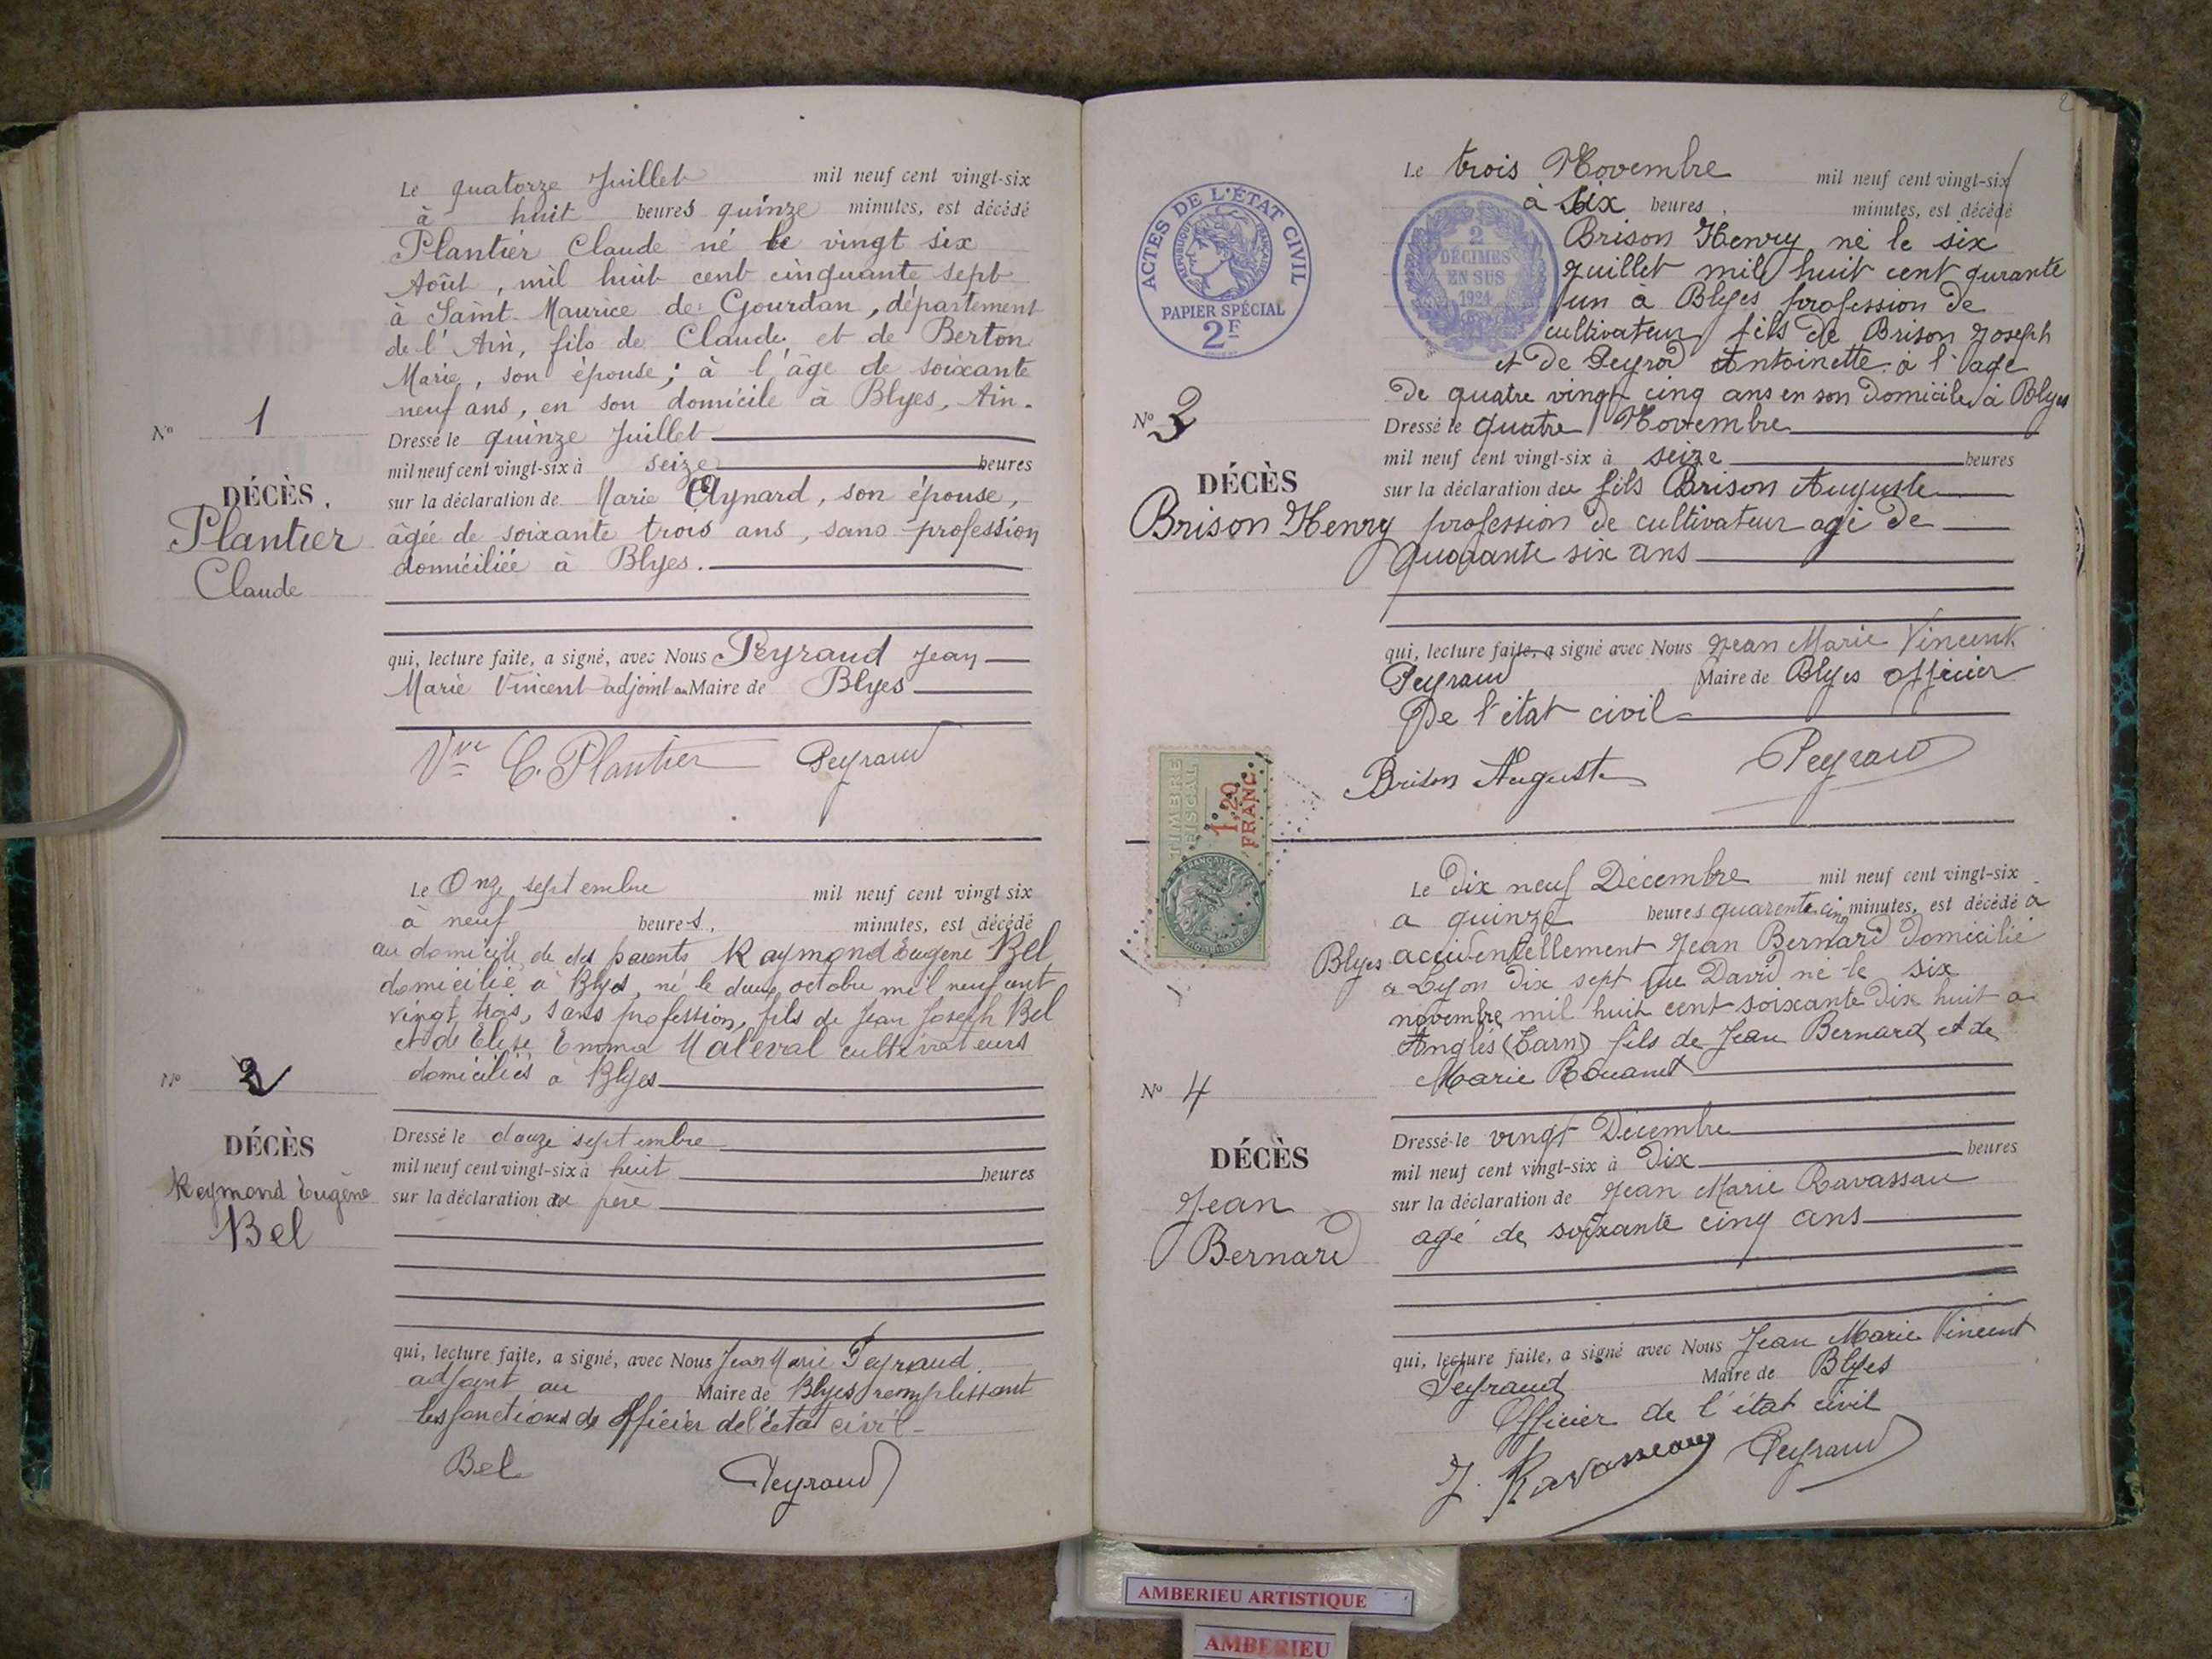 Le quatorze Juillet mil neuf cent vingt-six
à huit heures quinze minutes, est décédé
Plantier Claude né le vingt six
Août, mil huit cent cinquante sept
à Saint-Maurice de Gourdan, département
de l'Ain, fils de Claude et de Berton
Marie, son épouse; à l'âge de soixante
neuf ans, en son domicile à Blyes, Ain.
N° 1
Dressé le quinze Juillet
mil neuf cent vingt-six à seize heures
DÉCÈS.
sur la déclaration de Marie Aynard, son épouse,
Plantier
âgée de soixante trois ans, sans profession
domiciliée à Blyes.
Claude
qui, lecture faite, a signé, avec Nous Peyraud Jean
Marie Vincent adjoint au Maire de Blyes
Vve C. Plantier Peyraud
Le Onze septembre mil neuf cent vingt six
à neuf heures, minutes, est décédé
au domicile de ses parents Raymond Eugène Bel
domicilié à Blyes, né le deux octobre mil neuf cent
vingt trois, sans profession, fils de Jean Joseph Bel
et de Elise Emma Maleval cultivateurs
domiciliés à Blyes
N° 2
Dressé le douze septembre
DÉCÈS
mil neuf cent vingt-six à huit heures
Raymond Eugène
sur la déclaration du père
Bel
qui, lecture faite, a signé, avec Nous Jean Marie Peyraud
adjoint au Maire de Blyes remplissant
les fonctions de Officier de l'état civil
Bel Peyraud
2
ACTES DE L'ÉTAT CIVIL
RÉPUBLIQUE FRANÇAISE
PAPIER SPÉCIAL
2F
2
DÉCIMES
EN SUS
1924
Le trois Novembre mil neuf cent vingt-six
à six heures, minutes, est décédé
Brison Henry né le six
Juillet mil huit cent qurante
un à Blyes profession de
cultivateur fils de Brison Joseph
et de Peyrod Antoinette à l'age
De quatre vingt cinq ans en son Domicile à Blyes
N° 3
Dressé le quatre Novembre
mil neuf cent vingt-six à seize heures
DÉCÈS
sur la déclaration du fils Brison Auguste
Brison Henry
profession de cultivateur agé de
quarante six ans
qui, lecture faite, a signé avec Nous Jean Marie Vincent
Peyraud Maire de Blyes officier
De l'état civil
Brison Auguste Peyraud
TIMBRE
FISCAL
1,20
FRANC
Le dix neuf Décembre mil neuf cent vingt-six
a quinze heures quarente cinq minutes, est décédé a
Blyes accidentellement Jean Bernard Domicilié
a Lyon dix sept rue David né le six
novembre mil huit cent soixante dix huit a
Anglès (Tarn) fils de Jean Bernard et de
Marie Rouanet
N° 4
Dressé le vingt Décembre
mil neuf cent vingt-six à Dix heures
DÉCÈS
sur la déclaration de Jean Marie Ravassau
Jean
agé de soixante cinq ans
Bernard
qui, lecture faite, a signé avec Nous Jean Marie Vincent
Peyraud Maire de Blyes
Officier de l'état civil
J. Ravasseau Peyraud
AMBERIEU ARTISTIQUE
AMBERIEU